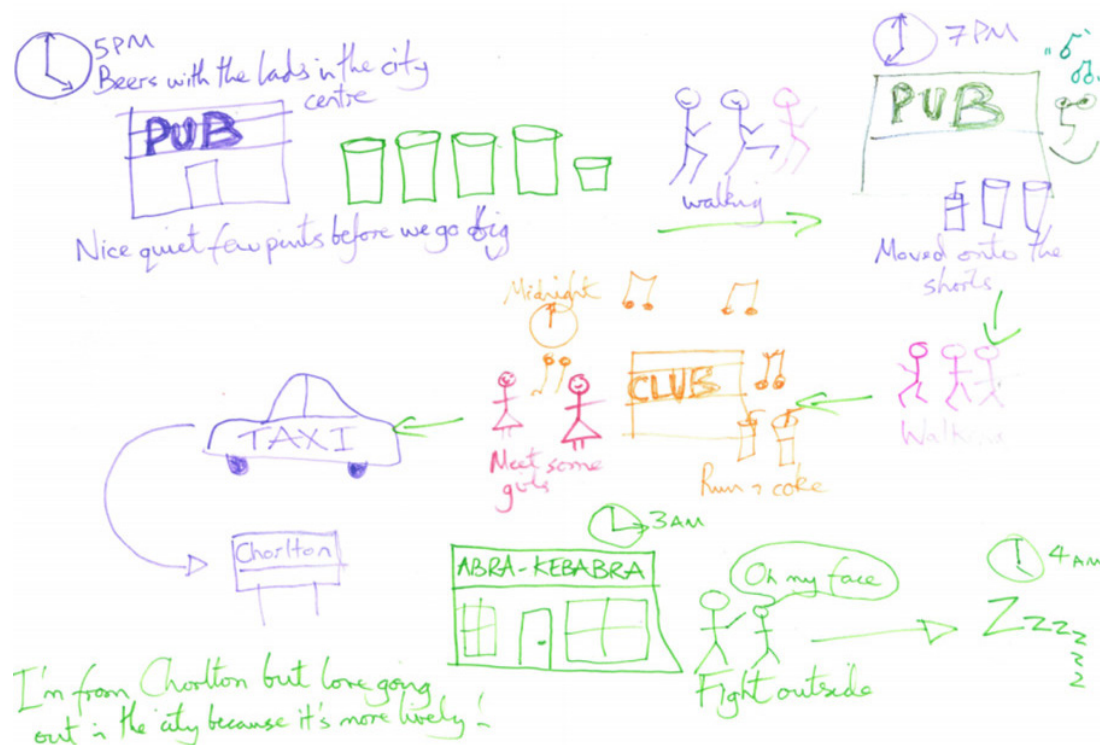 5PM
Beers with the lads in the city
centre
PUB
Nice quiet few pints before we go big
walking
7PM
PUB
Moved onto the
shorts
Walking
CLUB
Rum & coke
Midnight
Meet some
girls
TAXI
Chorlton
3AM
ABRA-KEBABRA
Oh my face
Fight outside
4AM
Zzzzzzz
I'm from Chorlton but love going
out in the city because it's more lively!